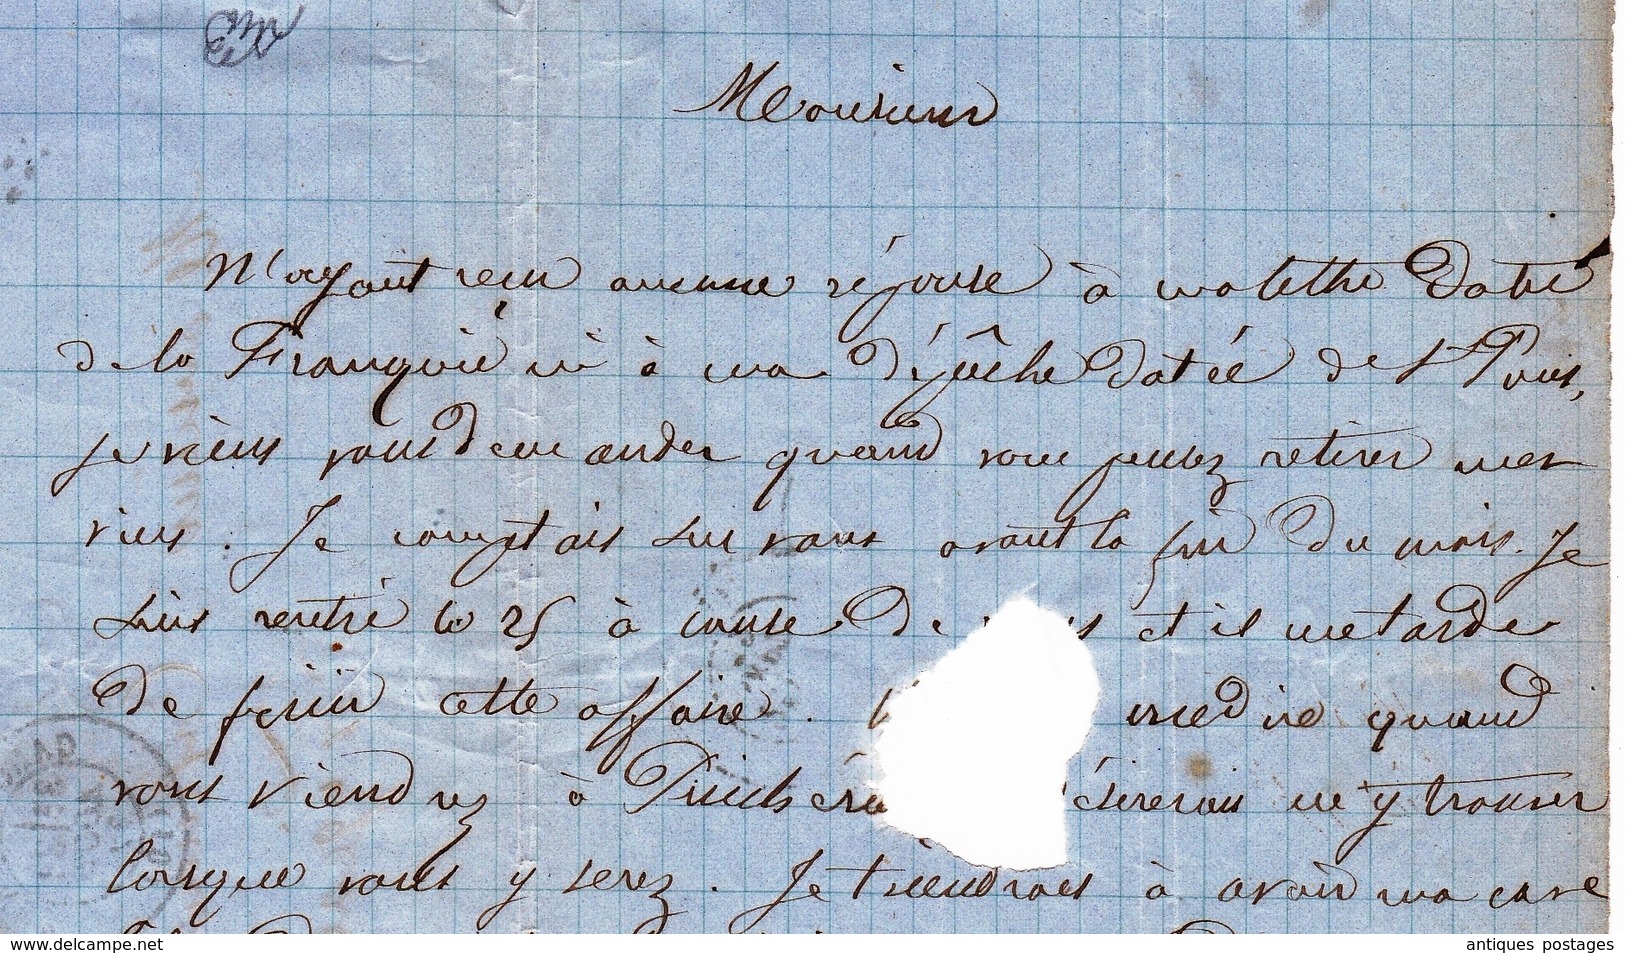 Monsieur
N'ayant reçu aucune réponse à ma lettre datée
de la Franquie ni à ma dépêche datée de St Pons,
je viens vous demander quand vous pensez retirer mes
vins. Je comptais sur vous avant la fin du mois. Je
suis rentré le 25 à cause de et il me tarde
de finir cette affaire. me dire quand
vous viendrez à désirerais m'y trouver
lorsque vous y serez. Je tiendrais à avoir ma cave
antiques-postages-in.delcampe.net
antiques postages